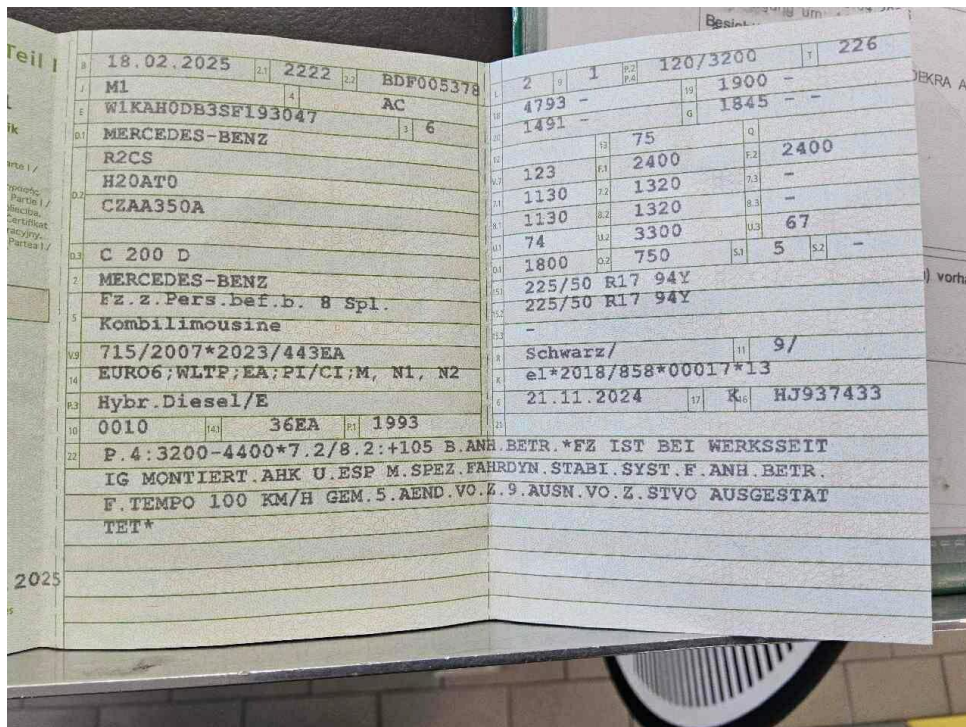 Teil I
B 18.02.2025 2.1 2222 2.2 BDF005378
J M1 4 AC
E W1KAH0DB3SF193047 3 6
D.1 MERCEDES-BENZ
R2CS
D.2 H20AT0
CZAA350A
D.3 C 200 D
2 MERCEDES-BENZ
5 Fz.z.Pers.bef.b. 8 Spl.
Kombilimousine
V.9 715/2007*2023/443EA
14 EURO6;WLTP;EA;PI/CI;M, N1, N2
P.3 Hybr.Diesel/E
10 0010 14.1 36EA P.1 1993
L 2 9 1 P.2 P.4 120/3200 T 226
18 4793 - 19 1900 -
20 1491 - G 1845 - -
12 13 75 Q
V.7 123 F.1 2400 F.2 2400
7.1 1130 7.2 1320 7.3 -
8.1 1130 8.2 1320 8.3 -
U.1 74 U.2 3300 U.3 67
O.1 1800 O.2 750 S.1 5 S.2 -
15.1 225/50 R17 94Y
15.2 225/50 R17 94Y
15.3 -
R Schwarz/ 11 9/
K e1*2018/858*00017*13
6 21.11.2024 17 K 16 HJ937433
21
22 P.4:3200-4400*7.2/8.2:+105 B.ANH.BETR.*FZ IST BEI WERKSSEIT
IG MONTIERT.AHK U.ESP M.SPEZ.FAHRDYN.STABI.SYST.F.ANH.BETR.
F.TEMPO 100 KM/H GEM.5.AEND.VO.Z.9.AUSN.VO.Z.STVO AUSGESTAT
TET*
2025
DEKRA A